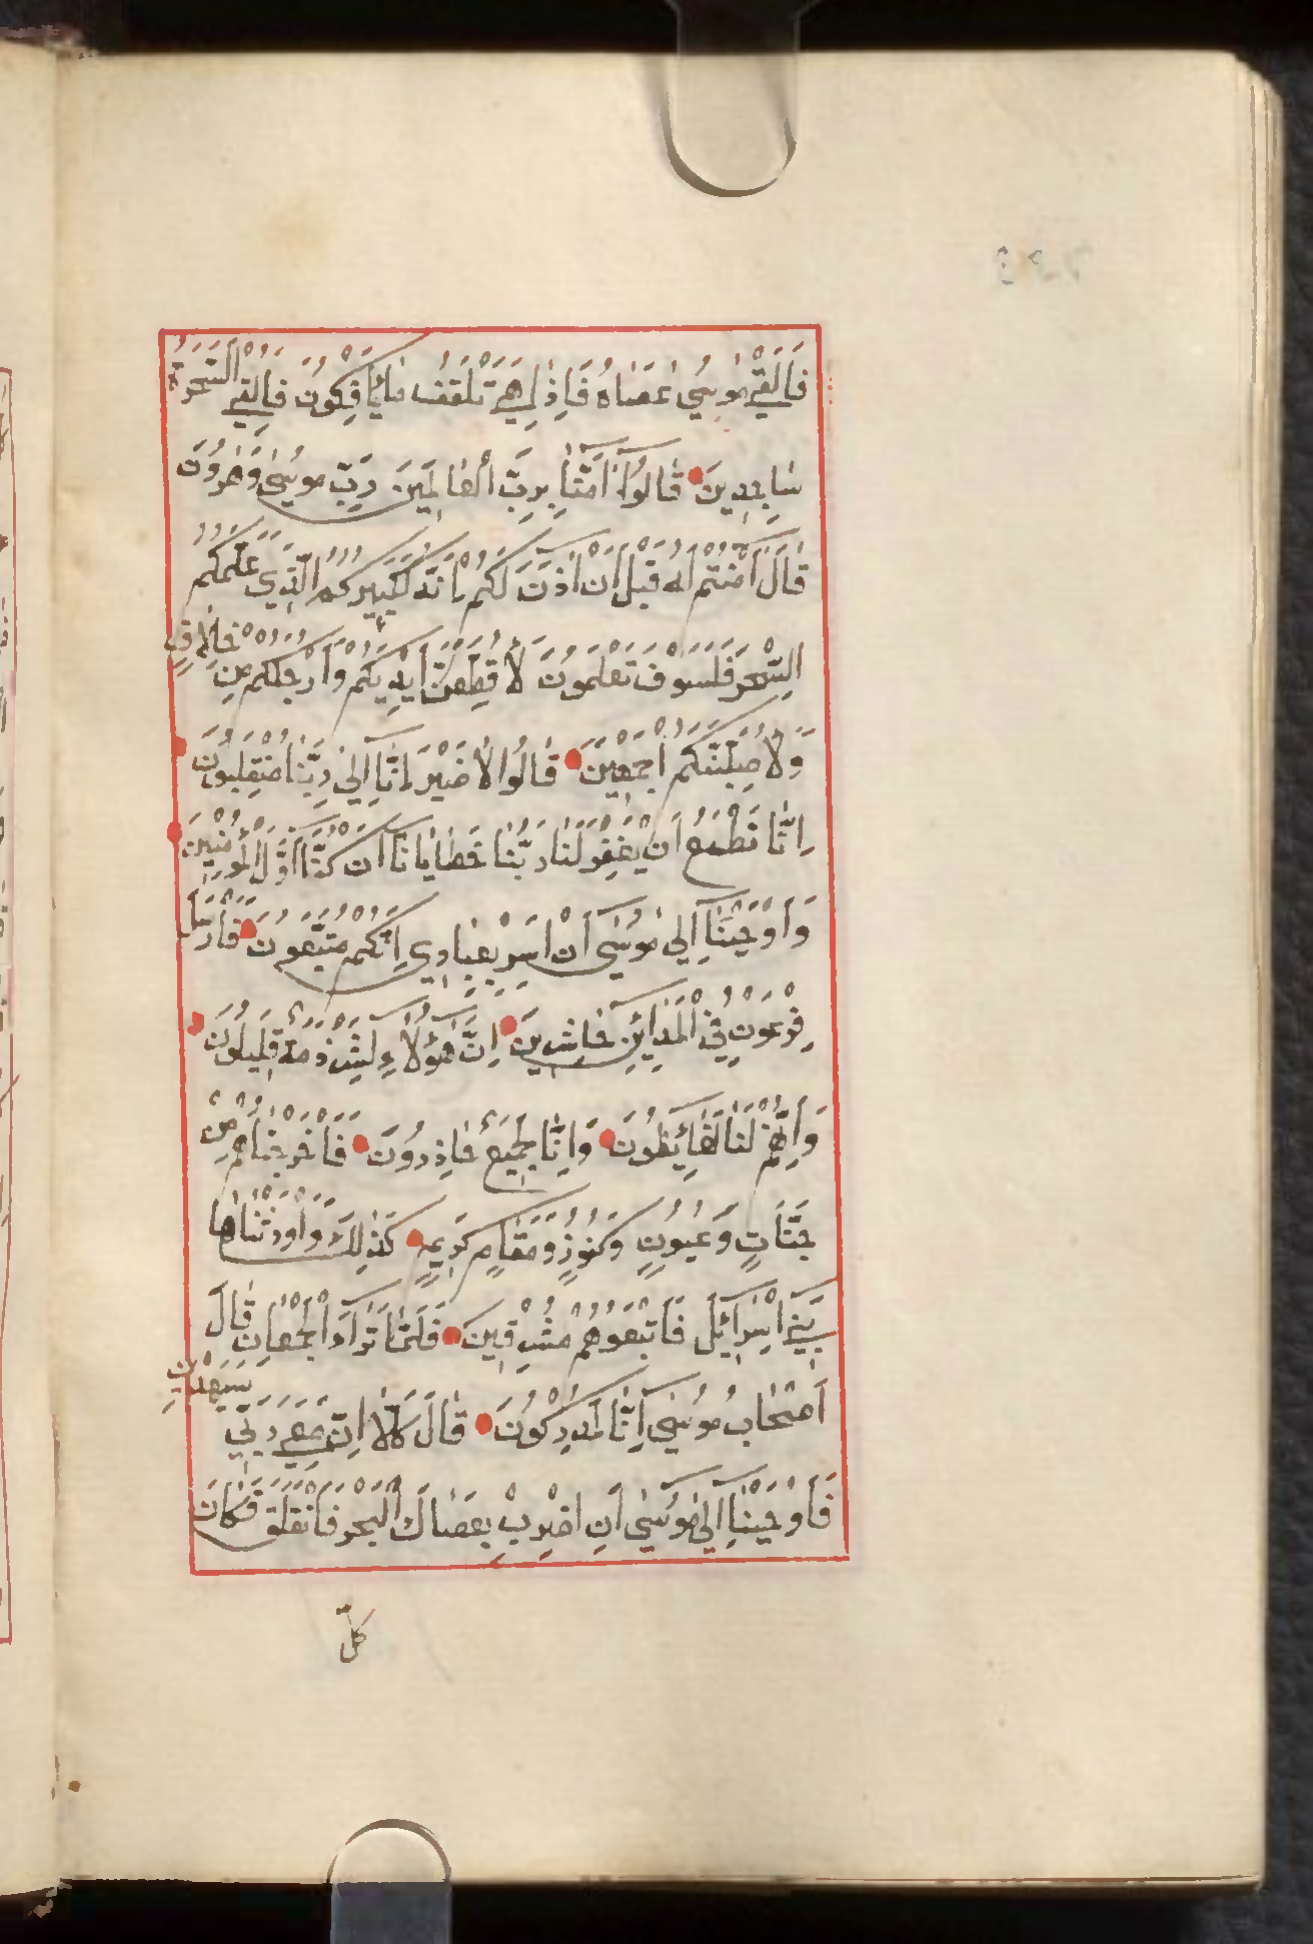 فَاَلْقٰى مُوسٰى عَصَاهُ فَاِذٰا هِىَ تَلْقَفُ مَا يَاْفِكُونَ فَاُلْقِىَ السَّحَرَةُ
سَاجِدِينَ قَالُوا اٰمَنَّا بِرَبِّ الْعَالَمِينَ رَبِّ مُوسٰى وَهٰرُونَ
قَالَ اٰمَنْتُمْ لَهُ قَبْلَ اَنْ اٰذَنَ لَكُمْ اِنَّهُ لَكَبِيرُكُمُ الَّذِى عَلَّمَكُمُ
السِّحْرَ فَلَسَوْفَ تَعْلَمُونَ لَاُقَطِّعَنَّ اَيْدِيَكُمْ وَاَرْجُلَكُمْ مِنْ خِلَافٍ
وَلَاُصَلِّبَنَّكُمْ اَجْمَعِينَ قَالُوا لَا ضَيْرَ اِنَّا اِلٰى رَبِّنَا مُنْقَلِبُونَ
اِنَّا نَطْمَعُ اَنْ يَغْفِرَ لَنَا رَبُّنَا خَطَايَانَا اَنْ كُنَّا اَوَّلَ الْمُؤْمِنِينَ
وَاَوْحَيْنَا اِلٰى مُوسٰى اَنْ اَسْرِ بِعِبَادِى اِنَّكُمْ مُتَّبَعُونَ فَاَرْسَلَ
فِرْعَوْنُ فِى الْمَدَائِنِ حَاشِرِينَ اِنَّ هٰؤُلَاءِ لَشِرْذِمَةٌ قَلِيلُونَ
وَاِنَّهُمْ لَنَا لَغَائِظُونَ وَاِنَّا لَجَمِيعٌ حَاذِرُونَ فَاَخْرَجْنَاهُمْ مِنْ
جَنَّاتٍ وَعُيُونٍ وَكُنُوزٍ وَمَقَامٍ كَرِيمٍ كَذٰلِكَ وَاَوْرَثْنَاهَا
بَنِى اِسْرَائِلَ فَاَتْبَعُوهُمْ مُشْرِقِينَ فَلَمَّا تَرَاءَ الْجَمْعَانِ قَالَ
اَصْحَابُ مُوسٰى اِنَّا لَمُدْرَكُونَ قَالَ كَلَّا اِنَّ مَعِىَ رَبِّى سَيَهْدِينِ
فَاَوْحَيْنَا اِلٰى مُوسٰى اَنِ اضْرِبْ بِعَصَاكَ الْبَحْرَ فَانْفَلَقَ فَكَانَ
كُلُّ